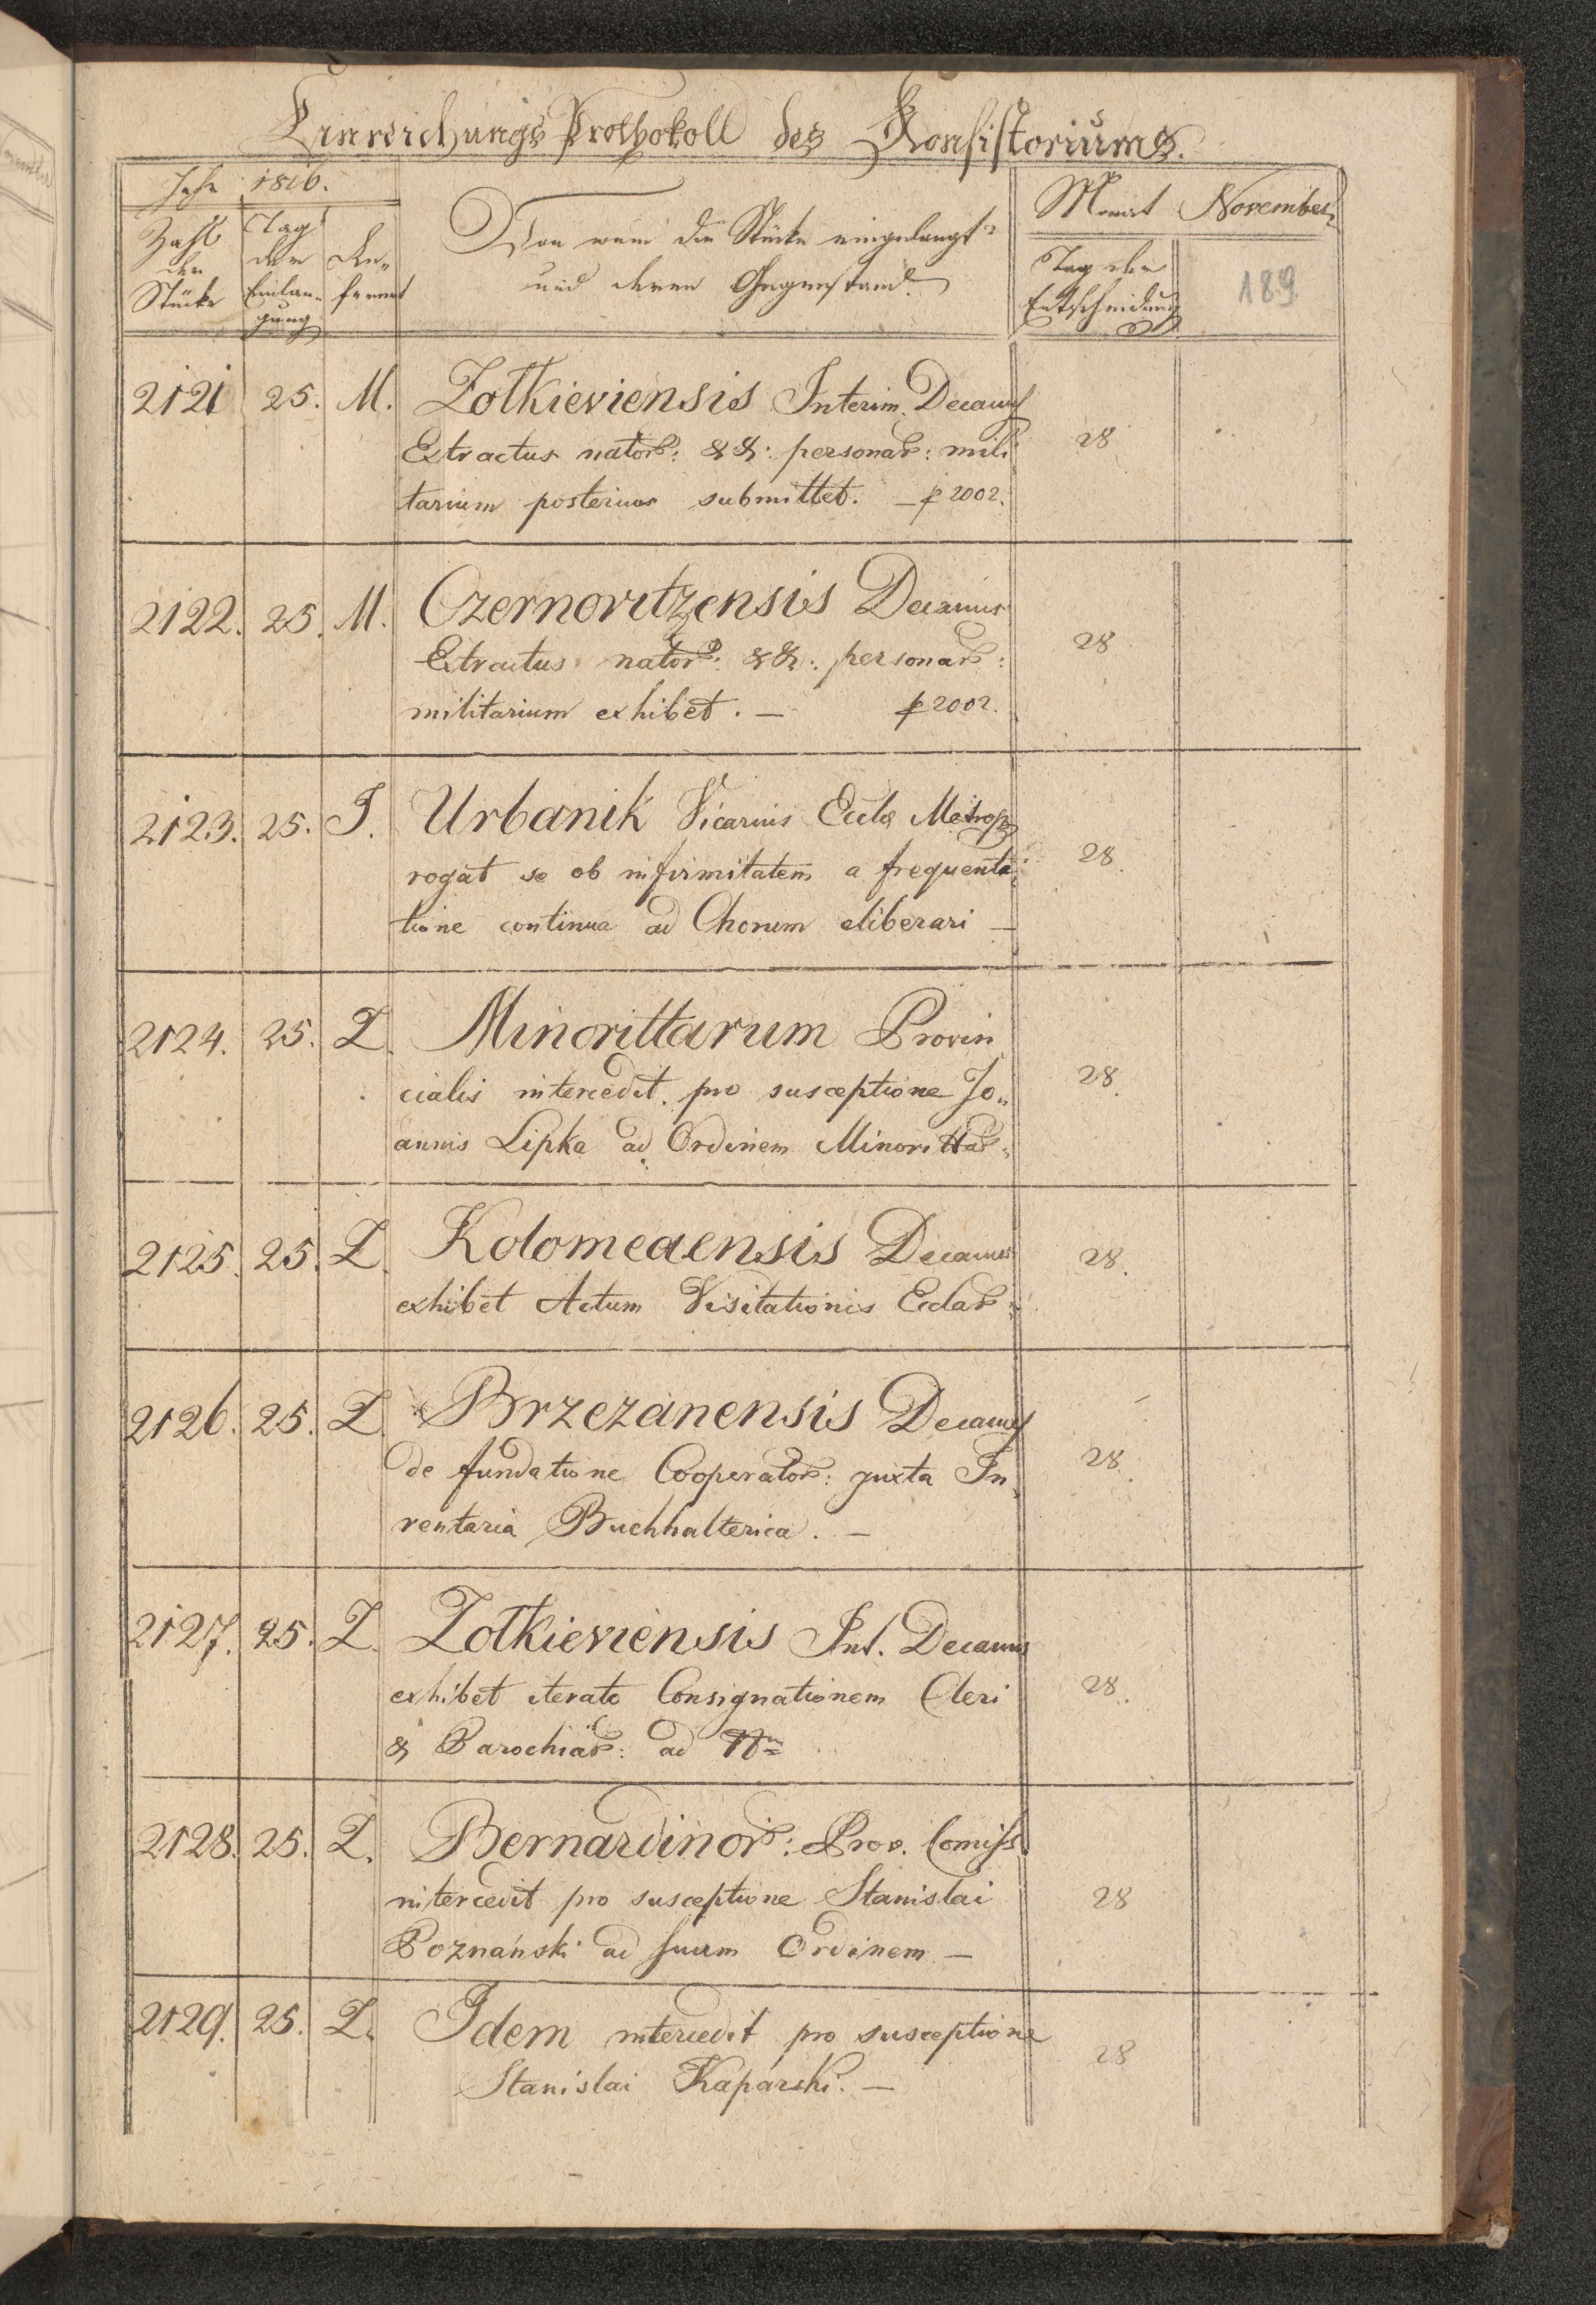 Einreichungs Prothokoll des Konsistoriums.
Jahr 1816.
Monat November
Zahl der Stücke
Tag der Einlangung
Referent
Von wem die Stücke eingelangt
und deren Gegenstand
Tag der
Entscheidung
189
2121 25. M. Zołkieviensis Interim. Decanus
Extractus nator: &&: personar: mili
tarium posterius submittet. — p 2002.
28
2122. 25. M. Czernovitzensis Decanus
Extractus nator: &&: personar:
militarium exhibet. — p 2002.
28
2123. 25. J. Urbanik Vicarius Eccle Metrop
rogat se ob infirmitatem a frequenta
tione continua ad Chorum eliberari —
28
2124. 25. Z. Minorittarum Provin
cialis intercedit pro susceptione Jo„
annis Lipka ad Ordinem Minorittar:
28
2125. 25. Z. Kolomeaensis Decanus
exhibet Actum Visitationis Eclar:
28.
2126. 25. Z. Brzezanensis Decanus
de fundatione Cooperator: juxta In
ventaria Buchhalterica. —
28
2127. 25. Z. Zołkieviensis Int. Decanus
exhibet iterato Consignationem Cleri
& Parochiar: ad Nm
28.
2128. 25. Z. Bernardinor: Prov. Comiss.
intercedit pro susceptione Stanislai
Poznański ad suum Ordinem —
28
2129. 25. Z. Idem intercedit pro susceptione
Stanislai Kaparski. —
28